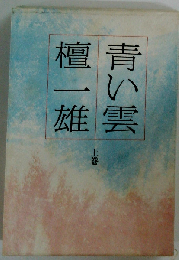 青い雲
檀一雄
上巻